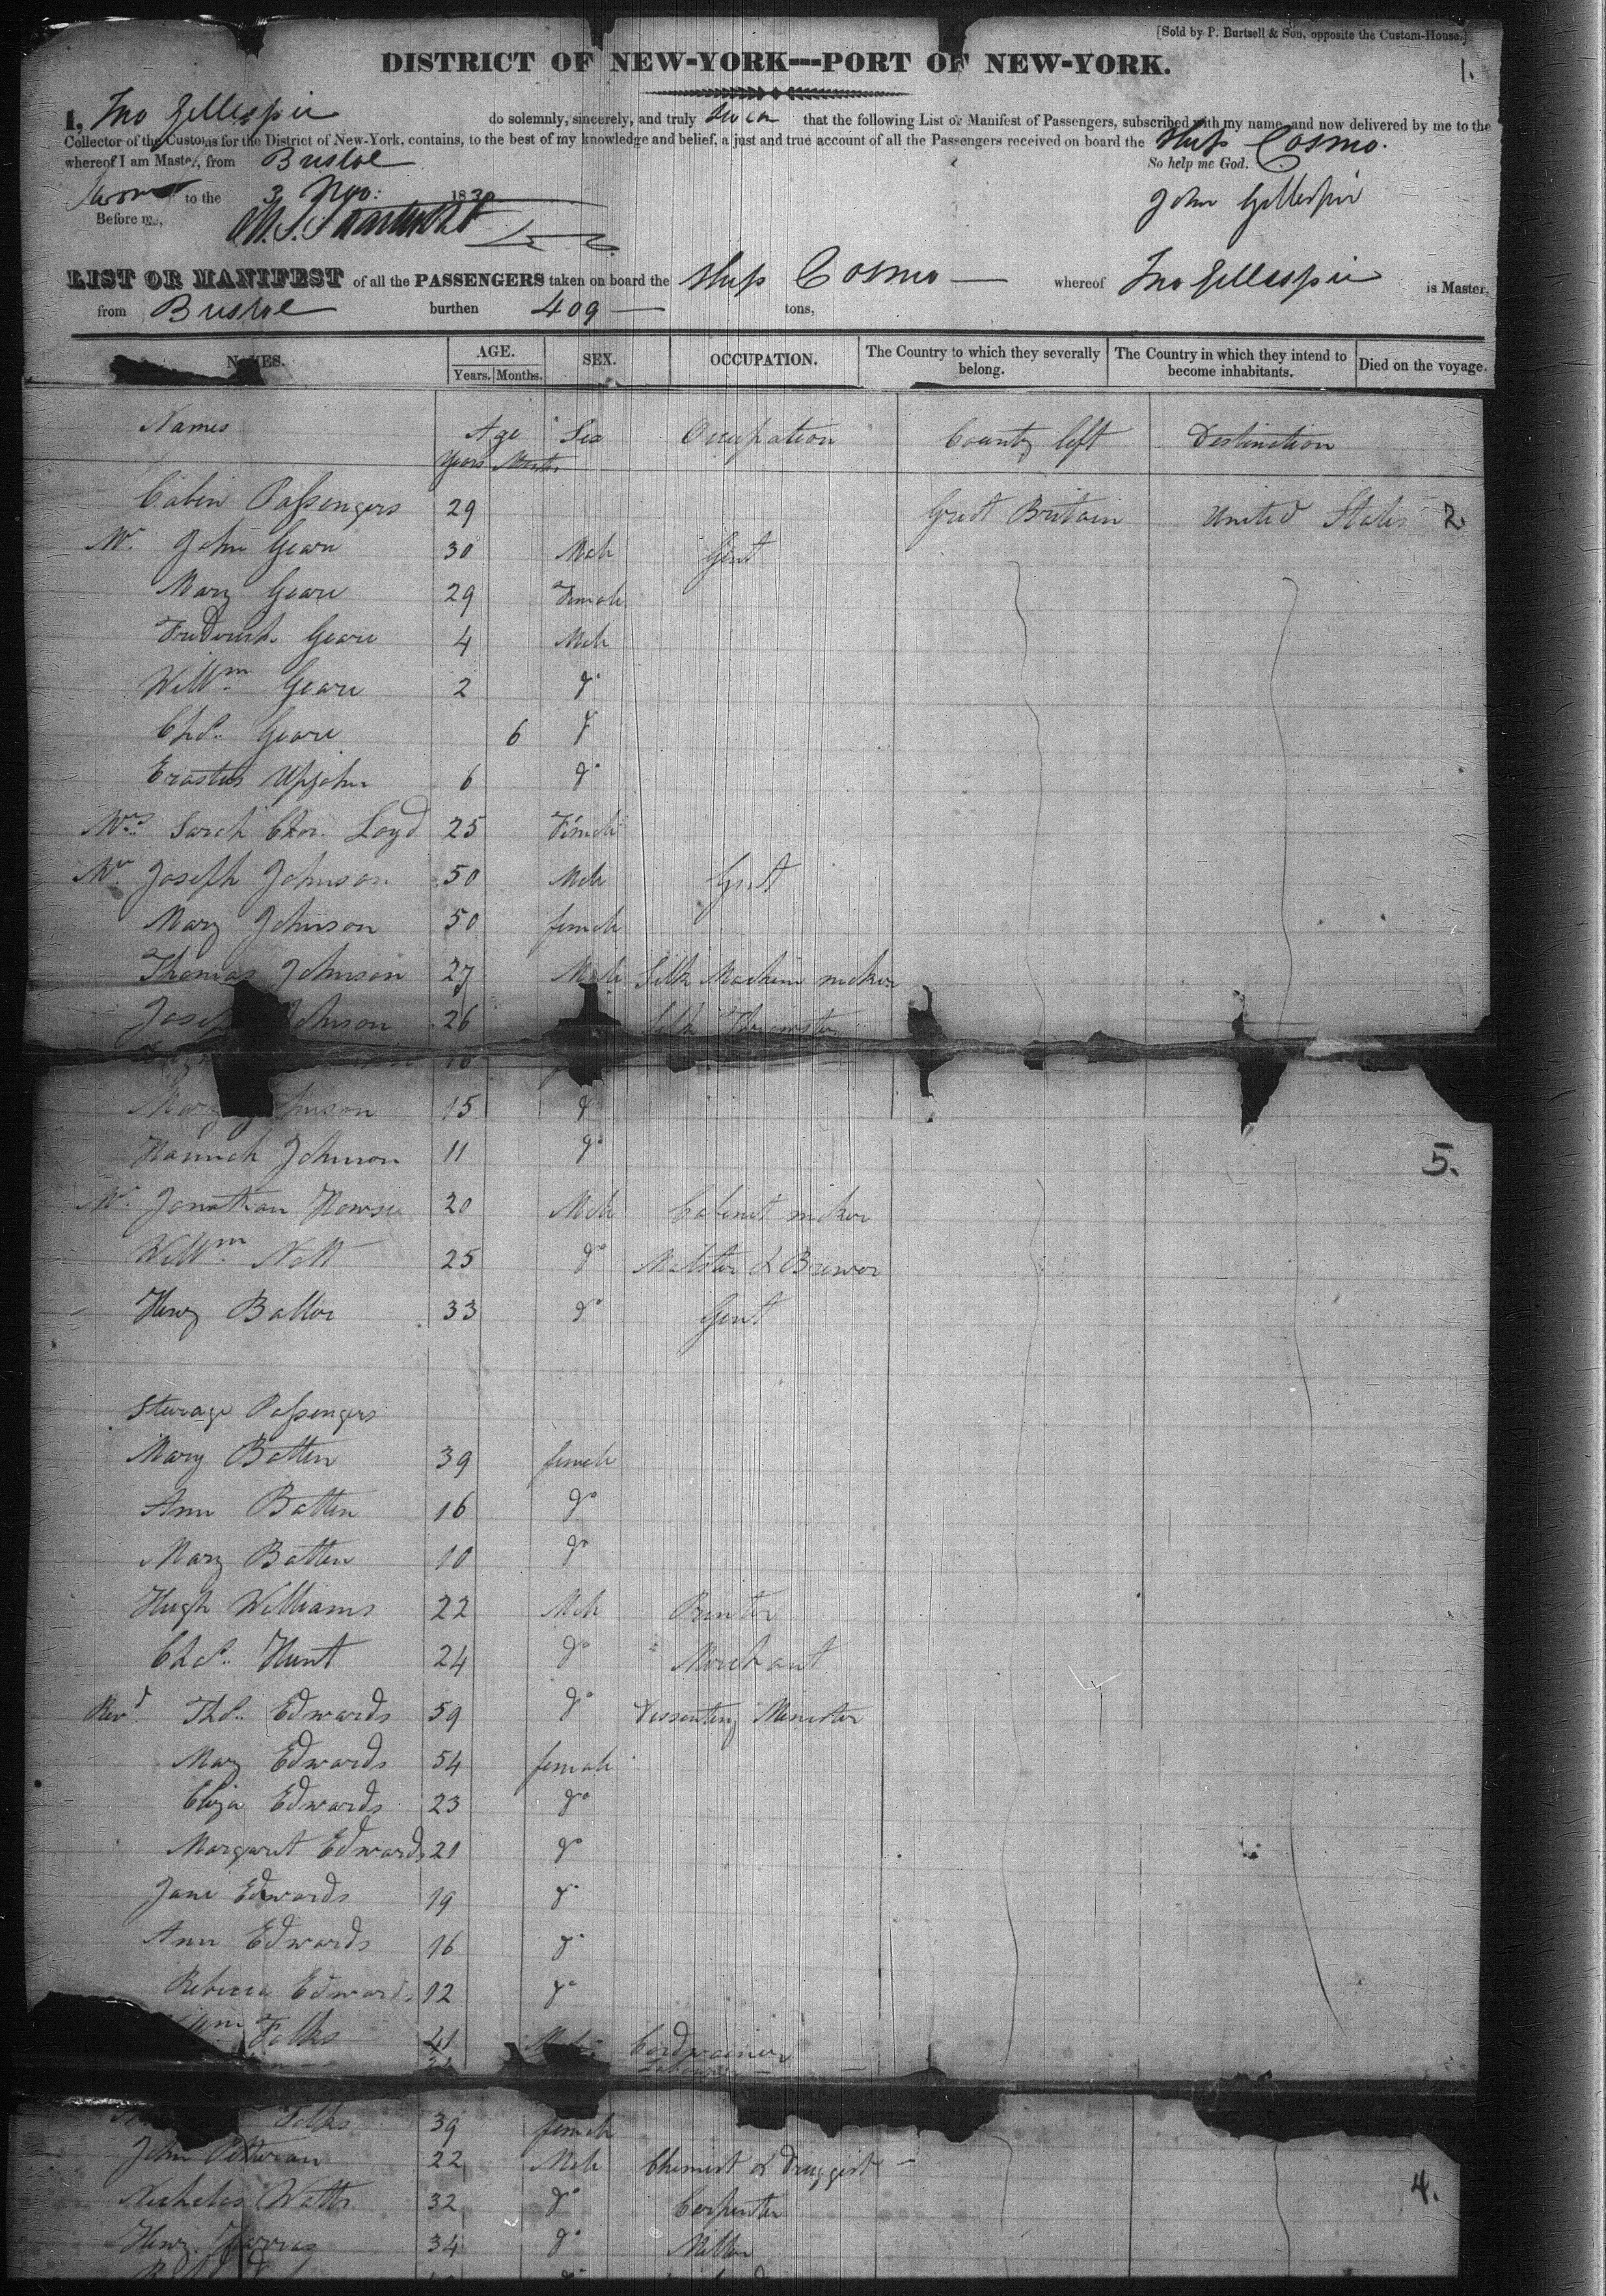 [Sold by P. Burtsell & Son, opposite the Custom-House.]
1.
DISTRICT OF NEW-YORK---PORT OF NEW-YORK.
I, Jno Gillespie do solemnly, sincerely, and truly swear that the following List or Manifest of Passengers, subscribed with my name, and now delivered by me to the
Collector of the Customs for the District of New-York, contains, to the best of my knowledge and belief, a just and true account of all the Passengers received on board the Ship Cosmo.
whereof I am Master, from Bristol So help me God.
Sworn to the 3 Nov: 1830 John Gillespie
Before me,
LIST OR MANIFEST of all the PASSENGERS taken on board the Ship Cosmo whereof Jno Gillespie is Master,
from Bristol burthen 409 tons,
NAMES. AGE. SEX. OCCUPATION. The Country to which they severally belong. The Country in which they intend to become inhabitants. Died on the voyage.
Years. Months.
Names Age Sex Occupation County left Destination
Years Months
Cabin Passengers 29 Great Britain United States 2
Mr. John Geare 30 Male Gent
Mary Geare 29 Female
Frederick Geare 4 Male
Willm. Geare 2 do
Chs. Geare 6 do
Erastus Upjohn 6 do
Mrs. Sarah Loyd 25 Female
Mr. Joseph Johnson 50 Male Gent
Mary Johnson 50 female
Thomas Johnson 27 Male Silk Machine maker
Johnson 26 Silk Throwster
Mary Johnson 15 do
Hannah Johnson 11 do
5.
Mr. Jonathan Howse 20 Male Cabinet maker
Willm. Nott 25 do Malster & Brewer
Henry Baller 33 do Gent
Steerage Passengers
Mary Batten 39 female
Ann Batten 16 do
Mary Batten 10 do
Hugh Williams 22 Male Printer
Chs. Hunt 24 do Merchant
Revd. Ths. Edwards 59 do Dissenting Minister
Mary Edwards 54 female
Eliza Edwards 23 do
Margaret Edwards 21 do
Jane Edwards 19 do
Ann Edwards 16 do
Rebecca Edwards 12 do
Folks 41 Cordwainer
Folks 39 female
John 22 Male Chemist & Druggist
4.
Nicholas Watts 32 do Carpenter
Henry 34 do Miller